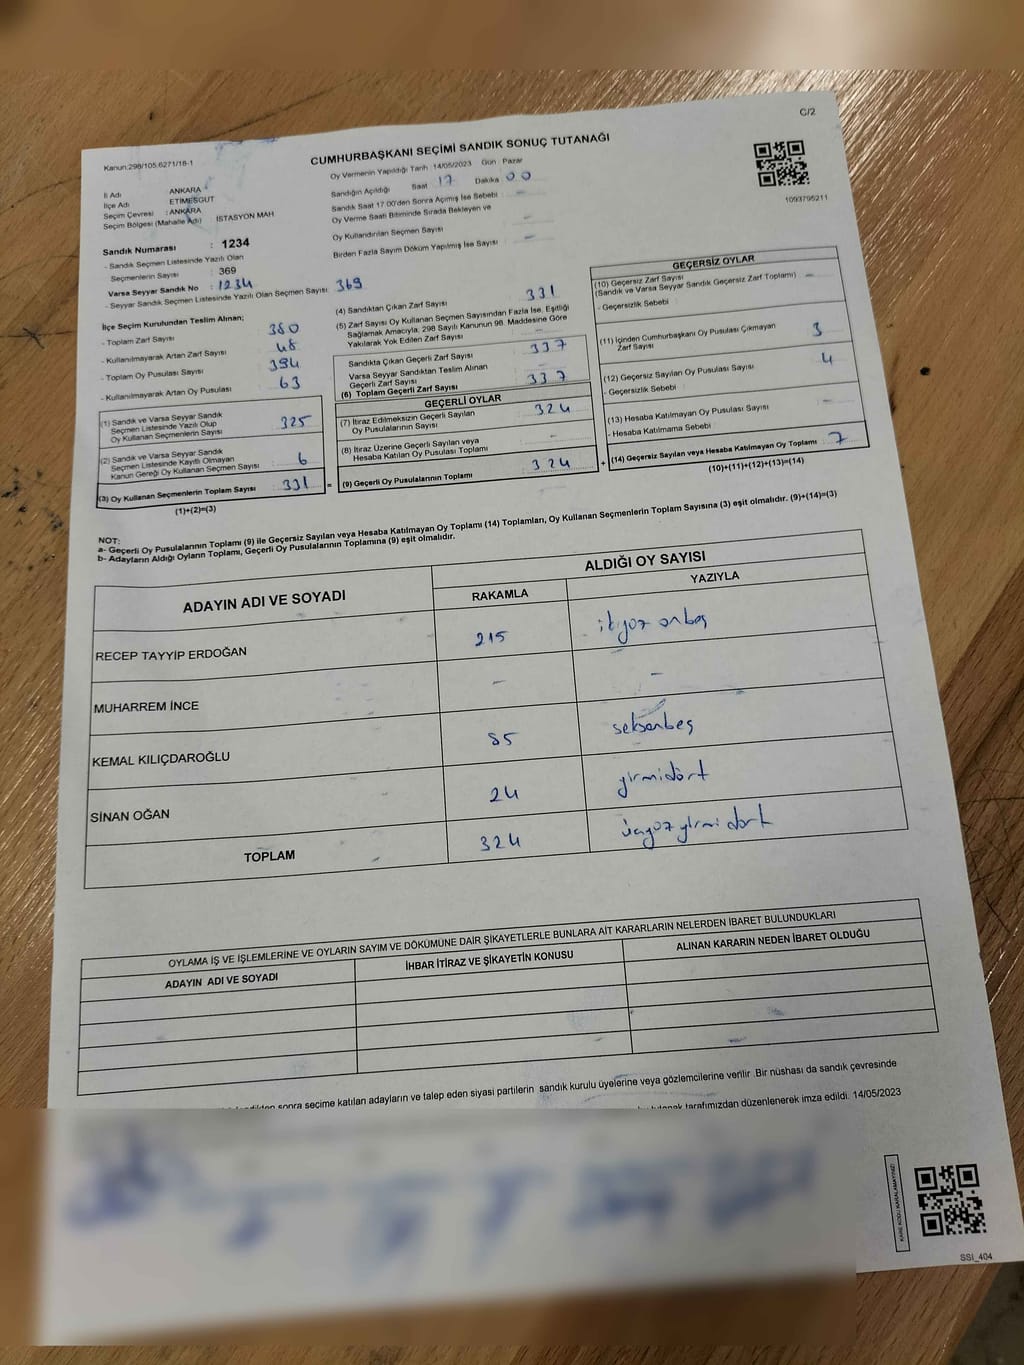 C/2
Kanun:298/105.6271/18-1
CUMHURBAŞKANI SEÇİMİ SANDIK SONUÇ TUTANAĞI
Oy Vermenin Yapıldığı Tarih :14/05/2023 Gün : Pazar
Sandığın Açıldığı Saat 17 Dakika 00
Sandık Saat 17.00'den Sonra Açılmış İse Sebebi : -
Oy Verme Saati Bitiminde Sırada Bekleyen ve
Oy Kullandırılan Seçmen Sayısı : -
Birden Fazla Sayım Döküm Yapılmış İse Sayısı : -
1093795211
İl Adı : ANKARA
İlçe Adı : ETİMESGUT
Seçim Çevresi : ANKARA
Seçim Bölgesi (Mahalle Adı) : İSTASYON MAH
Sandık Numarası : 1234
- Sandık Seçmen Listesinde Yazılı Olan
Seçmenlerin Sayısı : 369
Varsa Seyyar Sandık No : 1234
- Seyyar Sandık Seçmen Listesinde Yazılı Olan Seçmen Sayısı : 369
İlçe Seçim Kurulundan Teslim Alınan;
- Toplam Zarf Sayısı : 380
- Kullanılmayarak Artan Zarf Sayısı : 48
- Toplam Oy Pusulası Sayısı : 394
- Kullanılmayarak Artan Oy Pusulası : 63
(1) Sandık ve Varsa Seyyar Sandık
Seçmen Listesinde Yazılı Olup
Oy Kullanan Seçmenlerin Sayısı : 325
(2) Sandık ve Varsa Seyyar Sandık
Seçmen Listesinde Kayıtlı Olmayan
Kanun Gereği Oy Kullanan Seçmen Sayısı : 6
(3) Oy Kullanan Seçmenlerin Toplam Sayısı : 331
(1)+(2)=(3)
(4) Sandıktan Çıkan Zarf Sayısı : 331
(5) Zarf Sayısı Oy Kullanan Seçmen Sayısından Fazla İse, Eşitliği
Sağlamak Amacıyla, 298 Sayılı Kanunun 98. Maddesine Göre
Yakılarak Yok Edilen Zarf Sayısı : -
Sandıkta Çıkan Geçerli Zarf Sayısı : 337
Varsa Seyyar Sandıktan Teslim Alınan
Geçerli Zarf Sayısı : -
(6) Toplam Geçerli Zarf Sayısı : 337
GEÇERLİ OYLAR
(7) İtiraz Edilmeksizin Geçerli Sayılan
Oy Pusulalarının Sayısı : 324
(8) İtiraz Üzerine Geçerli Sayılan veya
Hesaba Katılan Oy Pusulası Toplamı : -
= (9) Geçerli Oy Pusulalarının Toplamı : 324
GEÇERSİZ OYLAR
(10) Geçersiz Zarf Sayısı : -
(Sandık ve Varsa Seyyar Sandık Geçersiz Zarf Toplamı)
- Geçersizlik Sebebi :
(11) İçinden Cumhurbaşkanı Oy Pusulası Çıkmayan
Zarf Sayısı : 3
(12) Geçersiz Sayılan Oy Pusulası Sayısı : 4
- Geçersizlik Sebebi :
(13) Hesaba Katılmayan Oy Pusulası Sayısı : -
- Hesaba Katılmama Sebebi :
+ (14) Geçersiz Sayılan veya Hesaba Katılmayan Oy Toplamı : 7
(10)+(11)+(12)+(13)=(14)
NOT:
a- Geçerli Oy Pusulalarının Toplamı (9) ile Geçersiz Sayılan veya Hesaba Katılmayan Oy Toplamı (14) Toplamları, Oy Kullanan Seçmenlerin Toplam Sayısına (3) eşit olmalıdır. (9)+(14)=(3)
b- Adayların Aldığı Oyların Toplamı, Geçerli Oy Pusulalarının Toplamına (9) eşit olmalıdır.
ADAYIN ADI VE SOYADI
ALDIĞI OY SAYISI
RAKAMLA YAZIYLA
RECEP TAYYİP ERDOĞAN 215 ikiyüz onbeş
MUHARREM İNCE - -
KEMAL KILIÇDAROĞLU 85 seksenbeş
SİNAN OĞAN 24 yirmidört
TOPLAM 324 üçyüz yirmi dört
OYLAMA İŞ VE İŞLEMLERİNE VE OYLARIN SAYIM VE DÖKÜMÜNE DAİR ŞİKAYETLERLE BUNLARA AİT KARARLARIN NELERDEN İBARET BULUNDUKLARI
ADAYIN ADI VE SOYADI İHBAR İTİRAZ VE ŞİKAYETİN KONUSU ALINAN KARARIN NEDEN İBARET OLDUĞU
sonra seçime katılan adayların ve talep eden siyasi partilerin sandık kurulu üyelerine veya gözlemcilerine verilir .Bir nüshası da sandık çevresinde
tutanak tarafımızdan düzenlenerek imza edildi. 14/05/2023
KARE KODU KARALAMAYINIZ!
SSI_404